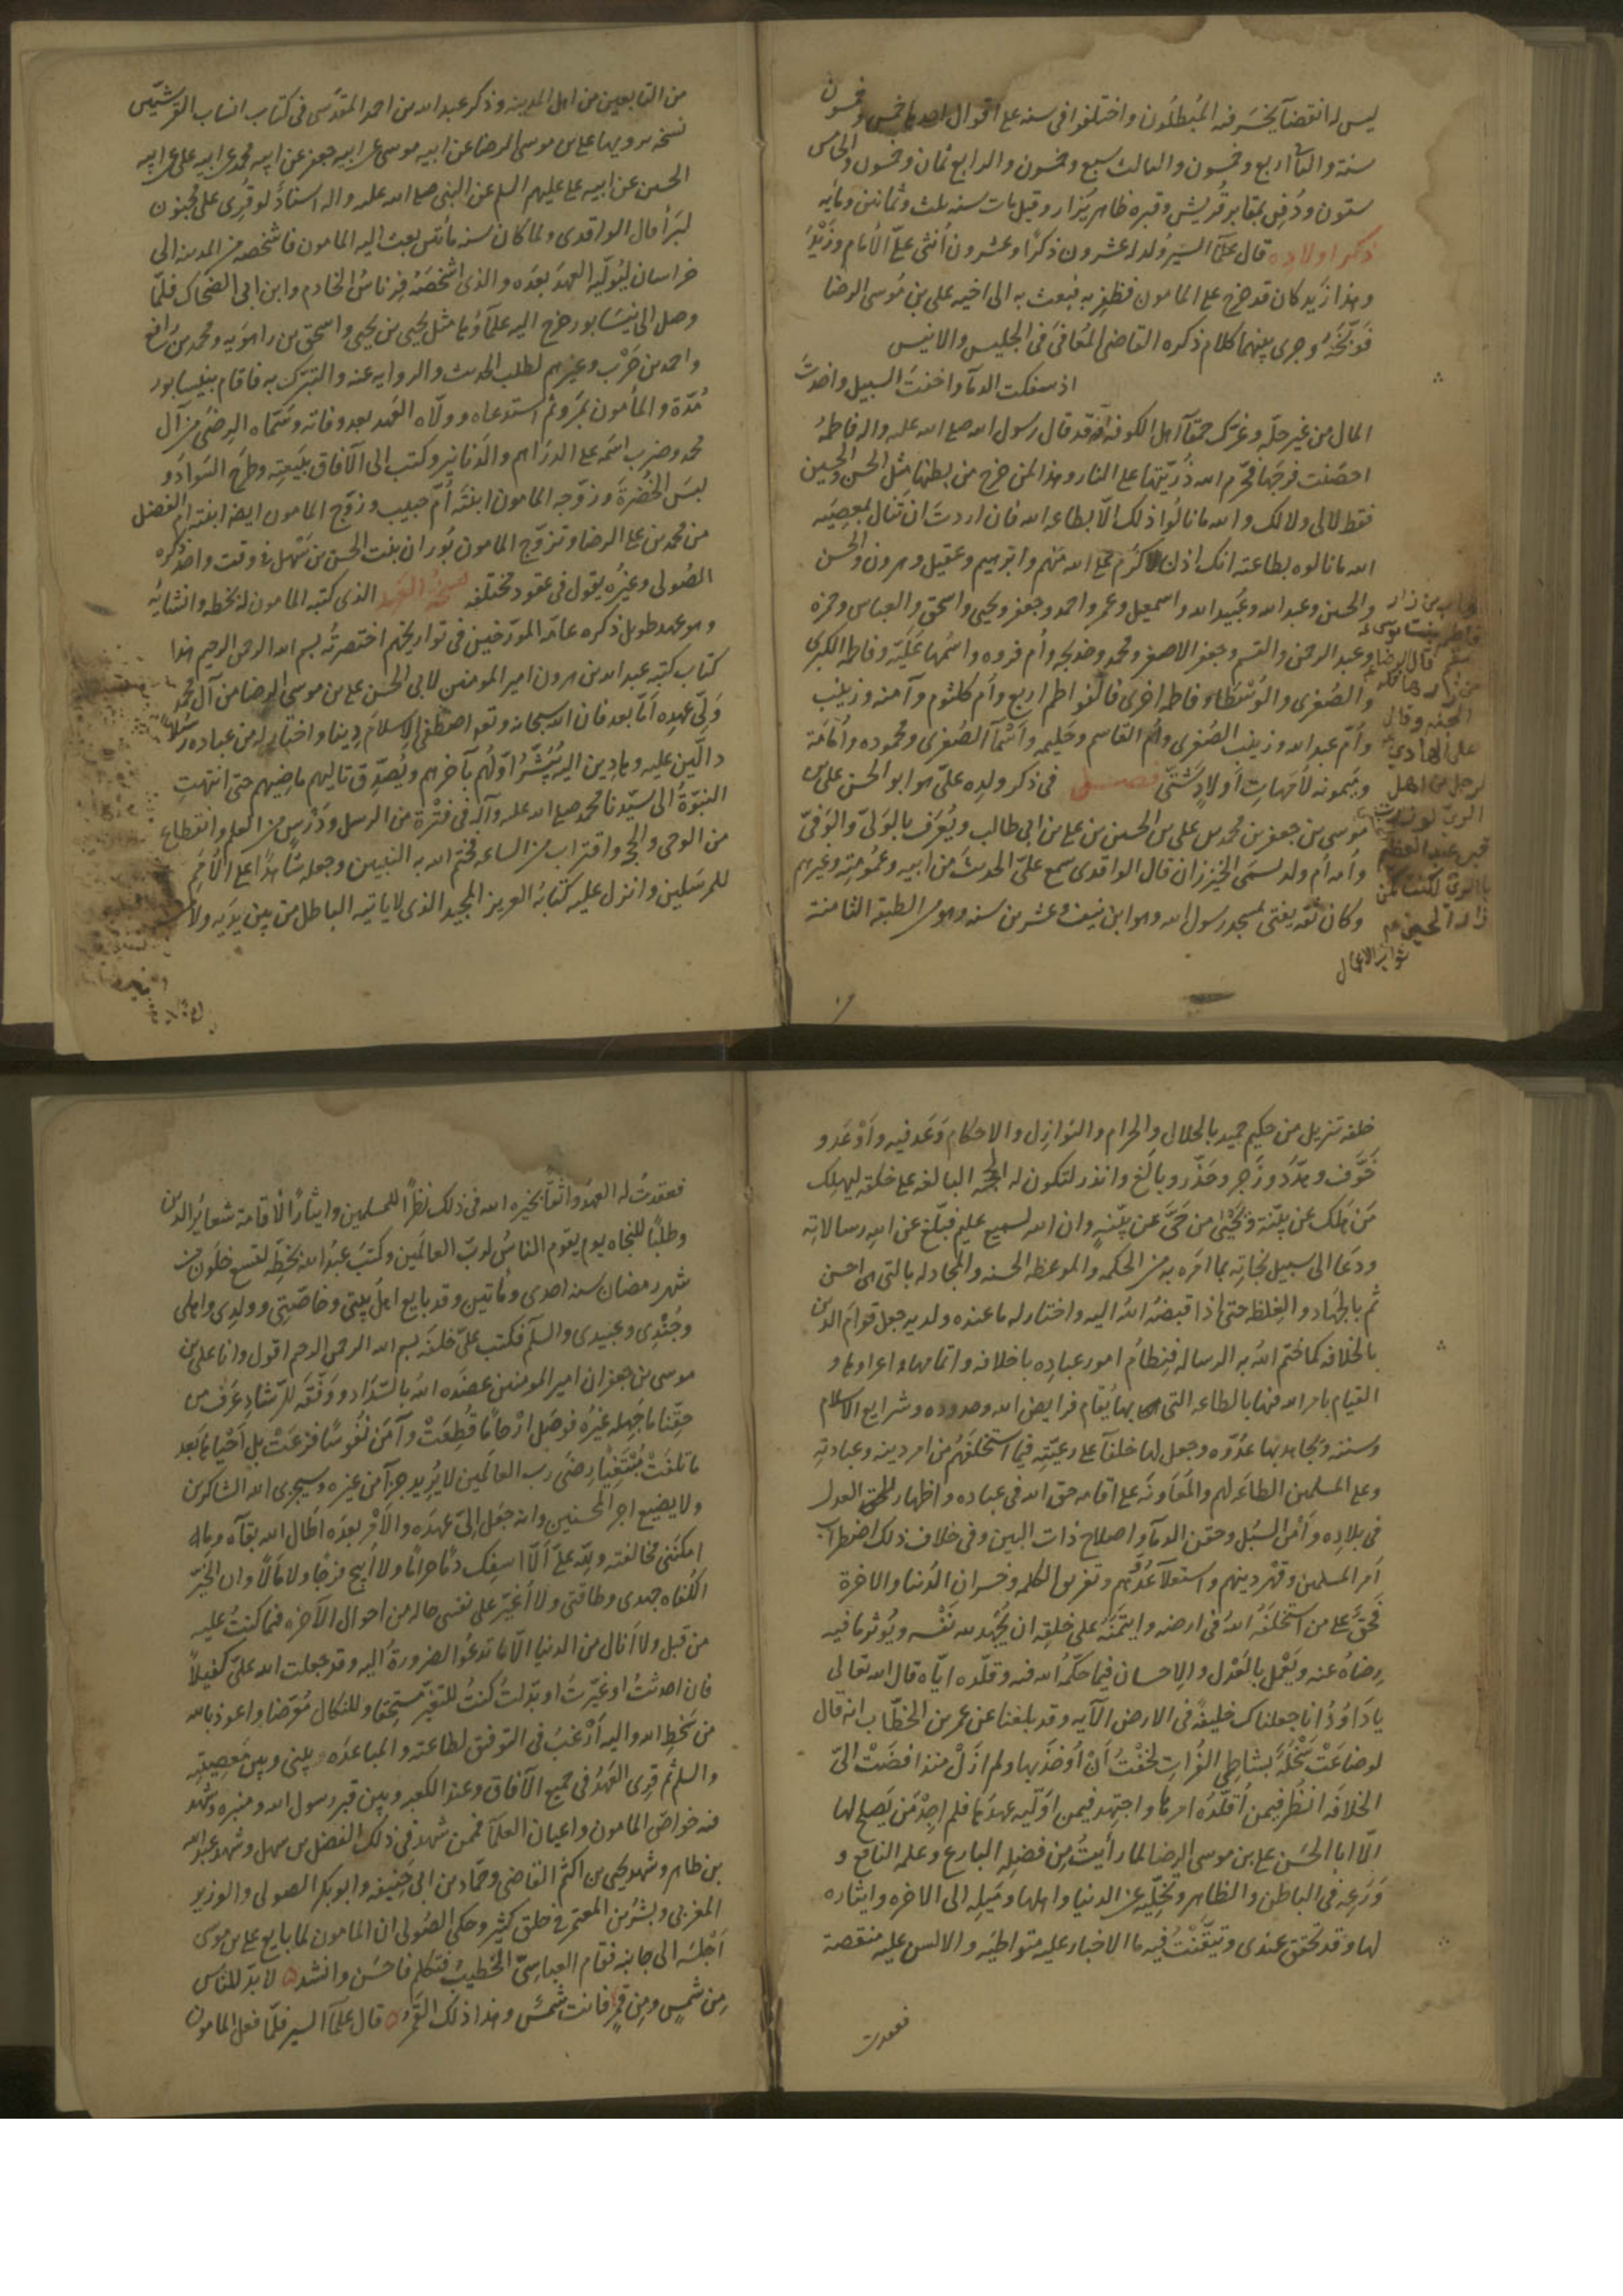 ليس له انقضآ يخسر فيه المبطلون واختلفوا فى سنه على اقوال احدها خمس وخمسون
سنة والثا اربع وخمسون والثالث سبع وخمسون والرابع ثمان وخمسون والخامس
ستون ودُفِن بمقابر قُريش وقبره ظاهر يُزار وقيل مات سنه ثلث وثمانين ومايه
ذكر اولاده قال علمآ السير وُلد له عشرون ذكرًا وعشرون أنثى علىّ الأمام وزَيْدٌ
وهذا زيد كان قد خرج على المامون فظفر به فبعث به الى اخيه على بن مُوسى الرضا
فَوَبَّخَهُ وجرى بينهما كلام ذكره القاضى المُعَافَى فى الجليس والانيس
اذ سفكت الدمآ واخفت السبيل واخذت
المال من غير حلّه وغرّك حمقآ اهل الكوفه وقد قال رسول الله صلى الله عليه واله فاطمهُ
احصَنت فرجَها فحرّم الله ذُرّيّتها على النار وهذا لمن خرج من بطنها مثل الحسن والحسين
فقط لا لى ولا لك والله ما نالُوا ذلك الّا بطاعه الله فان اردتَ ان تَنال بمعصِيَه
الله ما نالوه بطاعته انك اذن لاكرَم على الله منهم وابرهيم وعقيل وهرون والحسن
والحسين وعبد الله وعُبيد الله واسمعيل وعمر واحمد وجعفر ويحيى واسحق والعباس وحمزه
وعبد الرحمن والقسم وجعفر الاصغر ومحمد وخديجه وأم فروه واسمُها عَليّه وفاطمه الكبرى
والصُغرى والوُسْطا وفاطمه اخرى فالفواطم اربع وأم كلثوم وآمنه وزينب
وأمّ عبد الله وزينب الصُغرى وأم القاسم وحَليمه واَسْمآ الصُغرى ومحموده واُمَامَة
وميمونه لأمهاتِ أولادٍ شَتّى فصل فى ذكر ولدِه علىّ هو ابو الحسن على بن
موسى بن جعفر بن محمد بن على بن الحسين بن على بن ابى طالب ويُعرَف بالوَلىّ والوَفىّ
وأمه أم ولد تسمى الخيزران قال الواقدى سمع علىّ الحديثَ من ابيه وعُمُومتِه وغيرهم
وكان ثقه يفتى بمسجد رسول الله وهو ابن نيف وعشرين سنه وهو من الطبقه الثامنة
قال الرضا
الجنه وقال
على الهادي
لرجل من اهل
قبر عبد العظيم
ثواب الاعمال
من التابعين من اهل المدينه وذكر عبد الله بن احمد المقدسى فى كتاب انساب القرشيّين
نسخه يرويها على بن موسى الرضا عن ابيه موسى عن ابيه جعفر عن ابيه محمد عن ابيه على عن ابيه
الحسين عن ابيه على عليهم السلم عن النبى صلى الله عليه واله اسنادٌ لو قُرِى على مجنون
لبَرأ قال الواقدى ولما كان سنه مأتين بعث اليه المامون فاشخصه من المدينه الى
خراسان ليُوَلّيه العهدَ بعدَه والذى اشخصَهُ فِرناسُ الخادم وابن ابى الضحاك فلمّا
وصل الى نيسَابور خرج اليه علمآوُها مثل يحيى بن يحيى واسحق بن راهَوَيه ومحمد بن رافع
واحمد بن حَرْب وغيرهم لطلب الحديث والروايه عنه والتبرّك به فاقام بنيسابور
مُدّة والمأمون بمَرو ثم استدعاه وولّاه العَهد بعد وفاته وسَمّاه الرِضَى من آل
محمد وضرب اسمَه على الدرَاهم والدَنانير وكتب الى الآفاق ببَيعتِه وطرحَ السَوادَ و
لبسَ الخُضرةَ وزوّجه المامون ابنتَه أمّ حبيب وزوّج المامون ايضا ابنته ام الفضل
من محمد بن على الرضا وتزوّج المامون بُوران بنت الحسن بن سَهل فى وقت واحد ذكره
الصُولى وغيرُه يقول فى عقود مختلفه نسخة العهد الذى كتبه المامون له بخطه وانشايه
وهو عهد طويل ذكره عامّه المورّخين فى تواريخهم اختصرتُه بسم الله الرحمن الرحيم هذا
كتاب كتبه عبد الله بن هرون امير المومنين لابى الحسن على بن موسى الرضا من آل محمد
وَلىِّ عهدِه اَمّا بعد فان الله سبحانه وتع اصطفى الاِسلامَ دِينا واختار له من عباده رُسُلًا
دالّين عليه وهادِين اليه يُبَشّرُ اوّلُهم بآخرهم ويُصَدّق تاليهم ماضِيهم حتى انتهتِ
النبوّةُ الى سيّدنا محمد صلى الله عليه وآله فى فتْرة من الرسل ودَرْسٍ من العلم وانقطاع
من الوحى والحجه واقتراب من الساعه فختم الله به النبيين وجعله شاهدًا على الاُمَم
للمرسَلين وانزل عليه كتابَه العزيز المجيد الذى لا ياتيه الباطل من بين يدَيه ولا من
خلفه تنزيل من حكيم حميد بالحلال والحرام والنوَازِل والاحكام وَعَد فيه واَوْعَد و
خَوّف وهدّد وزَجر وحَذّر وبالَغ وانذر لتكون له الحجه البالغه على خلقه ليهلِك
مَن هلَك عن بيّنة ويَحْيَى من حَىَّ عن بيّنه وان الله لسميع عليم فبلّغ عن اللهِ رسالاتِه
ودعَا الى سبيل نجاتِه بما امَره به من الحكمه والموعظه الحسنه والمجادله بالتى هى احسن
ثم بالجهَاد والغِلظه حتى اذا قبضَهُ اللهُ اليه واختار له ما عنده ولديه جعل قوامَ الدين
بالخلافه كما ختم اللهُ به الرساله فنِظامُ امور عبادِه باخلافه واتمامها واعزازها و
القيام بامر الله فيها بالطاعه التى بها يُقام فرايض الله وحدوده وشرايع الاسلام
وسننه ويُجاهد بها عدُوّه وجعل لها خلفآ على رعيّتِه فيما استخلفَهُم من امر دينه وعبادتِه
وعلى المسلمين الطاعَه لهم والمُعَاونَه على اقامه حق الله فى عباده واظهار الحق العدل
فى بلادِه واَمْنِ السُبُل وحقن الدمآ واصلاح ذات البين وفى خلاف ذلك اضطراب
اَمر المسلمين وقَهر دينهم واستعلآ عدُوّهم وتفريق الكلمه وخسران الدُنيا والاخرة
فَحَقٌّ على من استخلَفَهُ اللهُ فى ارضه وايتمَنَهُ على خلقِه ان يُجْهِد لله نَفْسه ويُوثر ما فيه
رضاهُ عنه ويَعْمل بالعَدْل والاِحسان فيما حكّمهُ الله فيه وقلّده ايّاه قال الله تعالى
يا دَاوُدُ انا جعلناك خليفهً فى الارض الآيه وقد بلغنا عن عمر بن الخطّاب انه قال
لو ضاعَتْ سَخْلَةٌ بشاطِى الفُرات لخفْتُ اَنْ اُوخَذ بها ولم ازَلْ منذ افضَتْ الىّ
الخلافَه انظُر فيمن اُقلّدُه امرها واجتهِد فيمن اُوَلّيه عهدَها فلم اجِدْ مَن يَصلح لها
الّا ابا الحَسَن على بن موسى الرِضَا لما رأيتُ مِن فضلِه البارع وعلمه النافع و
وَرَعِه فى الباطن والظاهر وتخلّيه عن الدنيا واهلها ومَيله الى الاخره وايثاره
لها وقد تحقق عندى وتيَقّنْتُ فيه ما الاخبار عليه متواطيَه والالسن عليه متفقه
فعقدت
فعقدتُ له العهدَ واثقًا بخيره الله فى ذلك نظَرًا للمسلمين وايثارًا لاقامة شعاير الدين
وطلبًا للنجاه يوم يقوم الناسُ لرب العالَمين وكتبَ عبدُ الله بخطِه لتسع خلَون من
شهر رمضان سنه احدى ومأتين وقد بايع اهل بيتى وخاصّتِى وولدِى واهلى
وجُنْدِى وعبيدى والسلم فكتب علىّ خلفَه بسم الله الرحمن الرحيم اقول وانا على بن
موسى بن جعفر ان امير المومنين عضَده اللهُ بالسَدَاد ووَفّقَه للرّشادِ عَرَف من
حقّنا ما جَهله غيرُه فوصَل ارْحامًا قُطِعَتْ وآمَن نُفُوسًا فزعَتْ بل اَحْياها بعد
ما تلفَتْ مُبتَغِيًا رِضَى رب العالَمين لا يُريد جزآ من غيره وسيجزى الله الشاكرين
ولا يضيع اجر المحسنين وانه جَعَل اِلىّ عهدَه والاَمْر بعدَه اطال الله بقآه وما
امكنَنى مخالفته ولِله علىّ اَلّا اسفِك دَمًا حرامًا ولا اُبيح فرجًا ولا مَالًا وان اتخيّر
الكُفاه جهدى وطاقتى ولا اُغيّر على نفسى حاله من احوال الآخره فيما كنتُ عليه
من قبل ولا اَنال من الدنيا الّا ما تدعُو الضرورة اليه وقد جعلت الله علىّ كفيلًا
فان احدثتُ او غيّرتُ او بدّلتُ كنتُ للتغيّر مستحِقا وللنكال مُتَعرّضا واعوذ بالله
من سَخطِ الله واليه اَرْغبُ فى التوفيق لطاعته والمباعدَه بينى وبين مَعصِيتِه
والسلم ثم قُرِى العَهدُ فى جميع الآفاق وعند الكعبه وبين قبر رسول الله ومنبره وشهد
فيه خواصّ المامون واعيان العلمآ فممن شهد فى ذلك الفضل بن سهل وشهد عبد الله
بن طاهر وشهد يحيى بن اكثم القاضى وحمّاد بن ابى حَنيفه وابو بكر الصولى والوزير
المغربى وبشر بن المعتمر فى خلق كثير وحكى الصُولى ان المامون لما بايع على بن موسى
اَجْلسَه الى جانبه فقام العباسىّ الخطيبُ فتكلّم فاحسَن وانشد ٥ لا بدّ للناس
مِن شَمسٍ ومِن قمرٍ فانت شَمسٌ وهذا ذلك القَمَرُ ٥ قال علمآ السير فلمّا فعل المامون